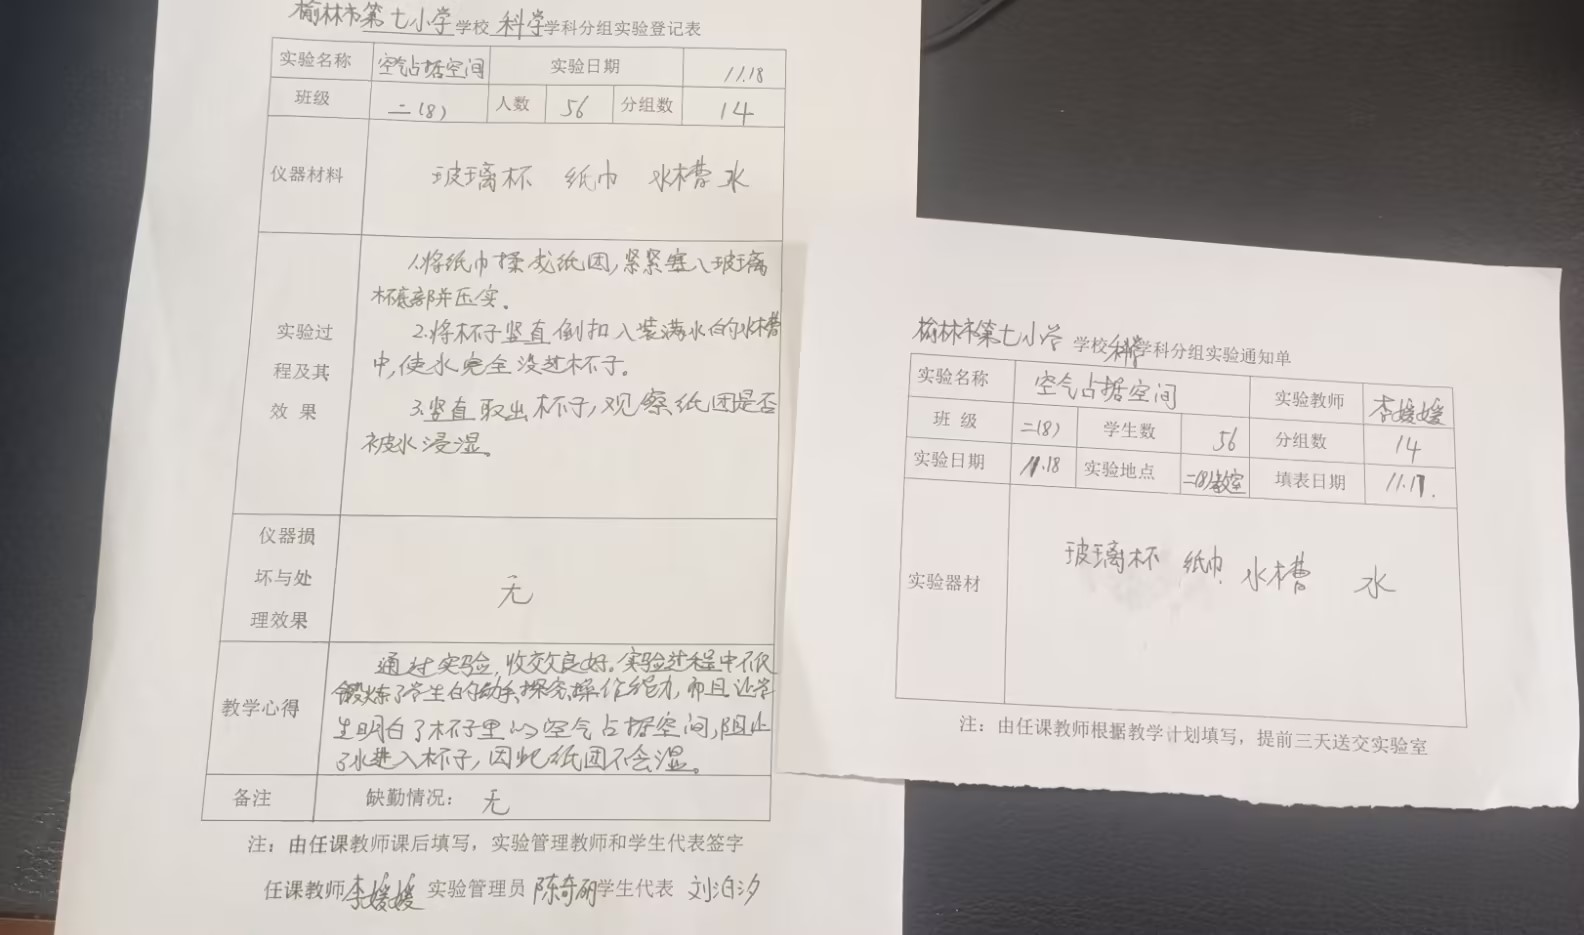 榆林市第七小学 学校 科学 学科分组实验登记表
实验名称 空气占据空间 实验日期 11.18
班级 二(8) 人数 56 分组数 14
仪器材料 玻璃杯 纸巾 水槽 水
实验过
程及其
效 果
1.将纸巾揉成纸团,紧紧塞入玻璃
杯底部并压实。
2.将杯子竖直倒扣入装满水的水槽
中,使水完全没过杯子。
3.竖直取出杯子,观察纸团是否
被水浸湿。
仪器损
坏与处
理效果
无
教学心得
通过实验,收效良好。实验过程中不仅
锻炼了学生的动手探究操作能力,而且让学
生明白了杯子里的空气占据空间,阻止
了水进入杯子,因此纸团不会湿。
备注 缺勤情况: 无
注:由任课教师课后填写,实验管理教师和学生代表签字
任课教师 李媛媛 实验管理员 陈奇 学生代表 刘泊汐
榆林市第七小学 学校 科学 学科分组实验通知单
实验名称 空气占据空间 实验教师 李媛媛
班 级 二(8) 学生数 56 分组数 14
实验日期 11.18 实验地点 二(8)教室 填表日期 11.17.
实验器材 玻璃杯 纸巾 水槽 水
注:由任课教师根据教学计划填写,提前三天送交实验室